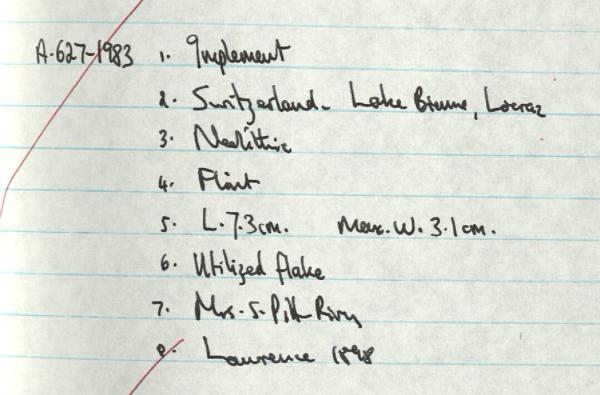 A.627-1983 1. Implement
2. Switzerland - Lake Bienne, Locraz
3. Neolithic
4. Flint
5. L. 7.3cm. Max. W. 3.1cm.
6. Utilized flake
7. Mrs. S. Pitt-Rivers
8. Lawrence 1898